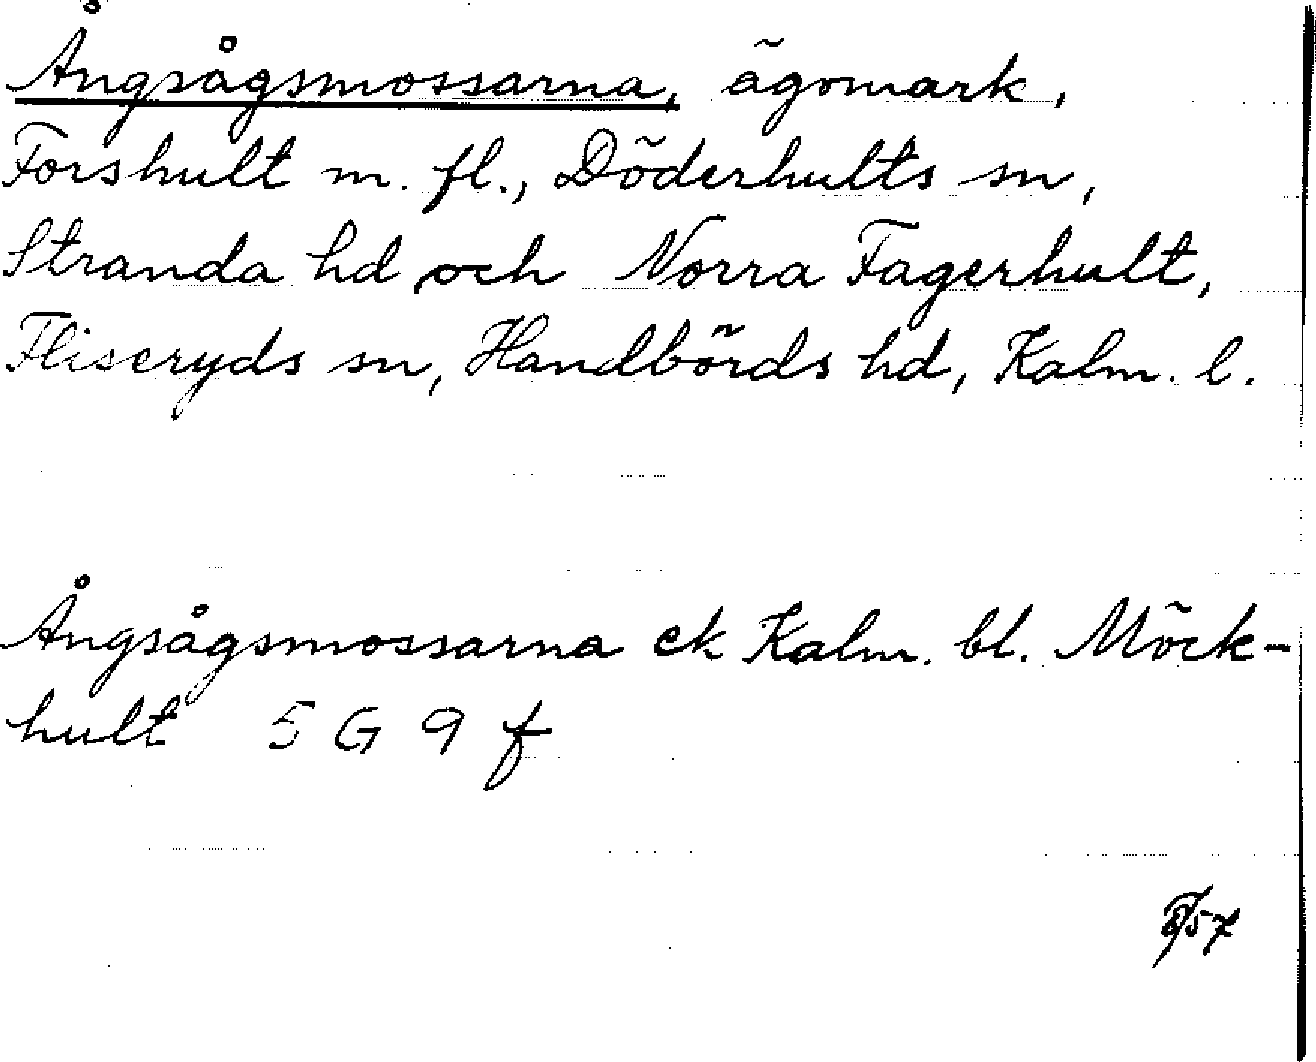 Ångsågsmossarna, ägomark,
Forshult m. fl., Döderhults sn,
Stranda hd och Norra Fagerhult,
Fliseryds sn, Handbörds hd, Kalm. l.
Ångsågsmossarna ek Kalm. bl. Möck-
hult 5 G 9 f
57